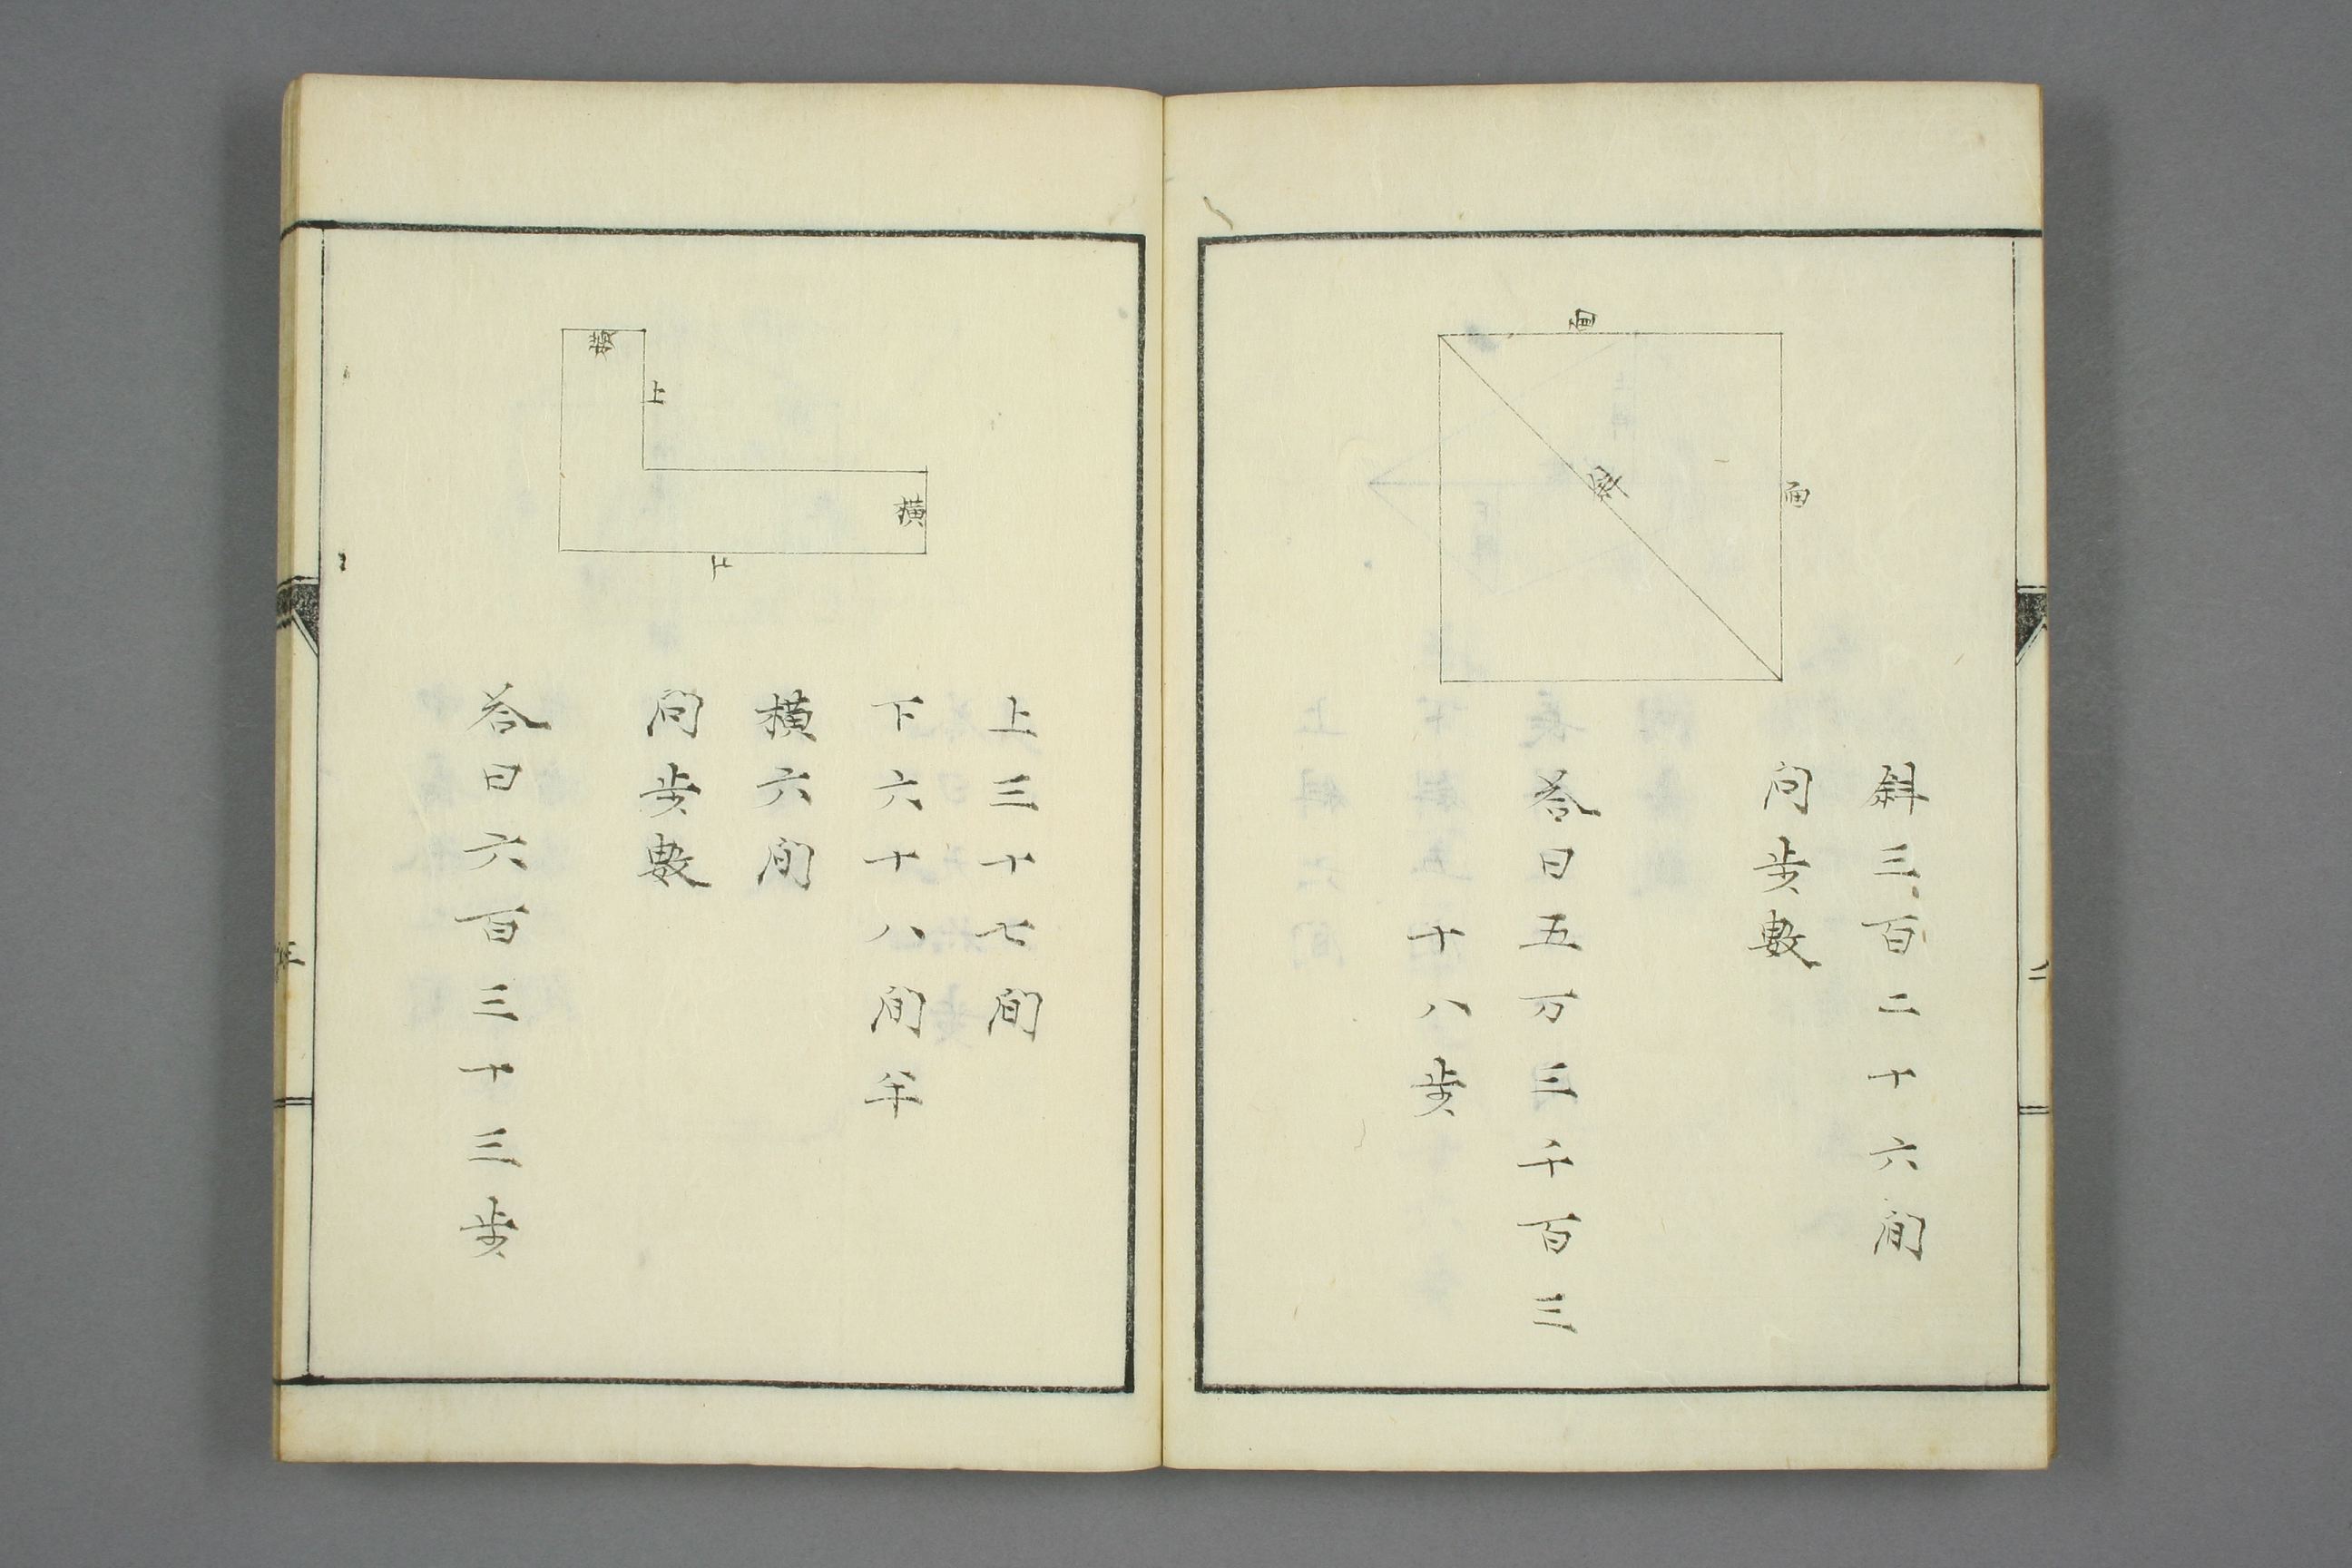 面
面
斜
斜三百二十六间
问歩數
答曰五万三千百三
十八歩
横
上
横
下
上三十七间
下六十八间半
横六间
问歩數
答曰六百三十三歩